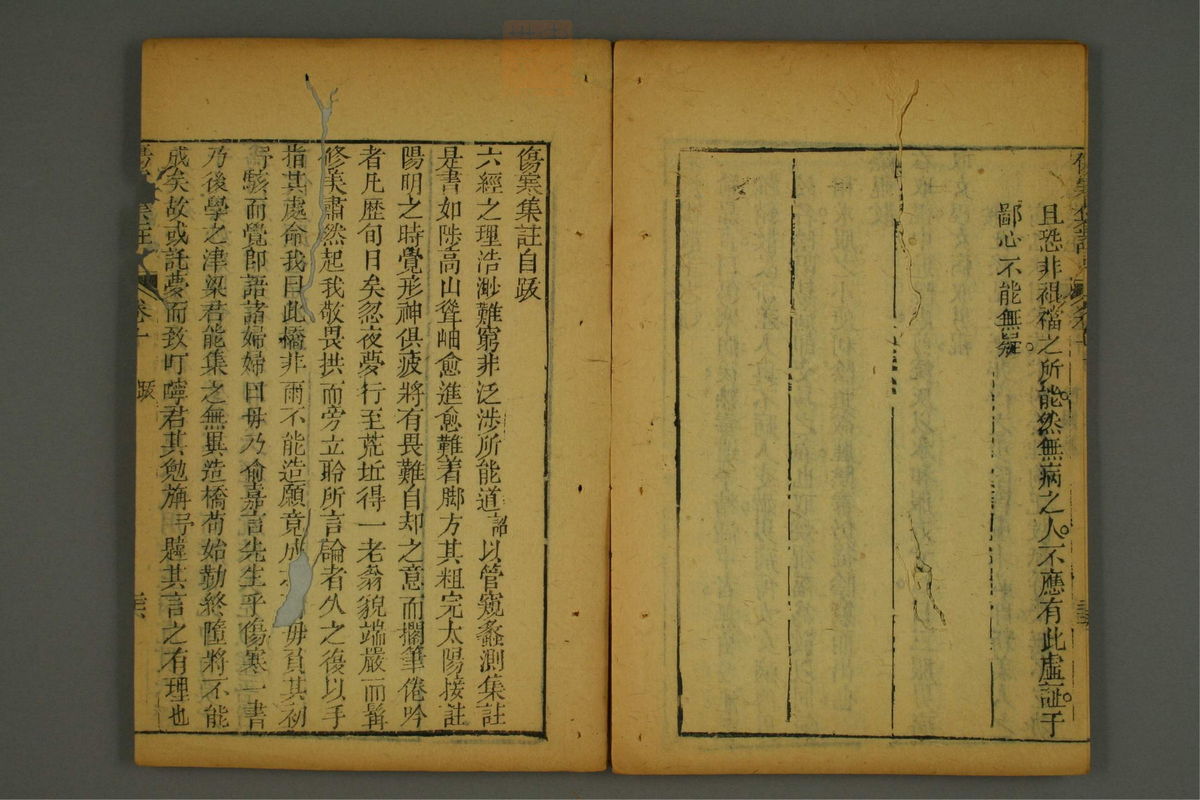 且恐非裋襠之所能然無病之人不應有此虛証于
鄙心不能無疑
傷寒集註自跋
六經之理浩渺難窮非泛涉所能道詔以管窺蠡測集註
是書如陟高山聳岫愈進愈難着脚方其粗完太陽接註
陽明之時覺形神俱疲將有畏難自却之意而擱筆倦吟
者凡歷旬日矣忽夜夢行至荒坵得一老翁貌端嚴而髯
修美肅然起我敬畏拱而旁立聆所言論者久之復以手
指其處命我曰此橋非雨不能造願竟成毋負其初
駭而覺卽語諸婦婦曰毋乃俞嘉言先生乎傷寒一書
乃後學之津梁君能集之無異造橋苟始勤終隳將不能
成矣故或託夢而致叮嚀君其勉旃其言之有理也
卷十 跋